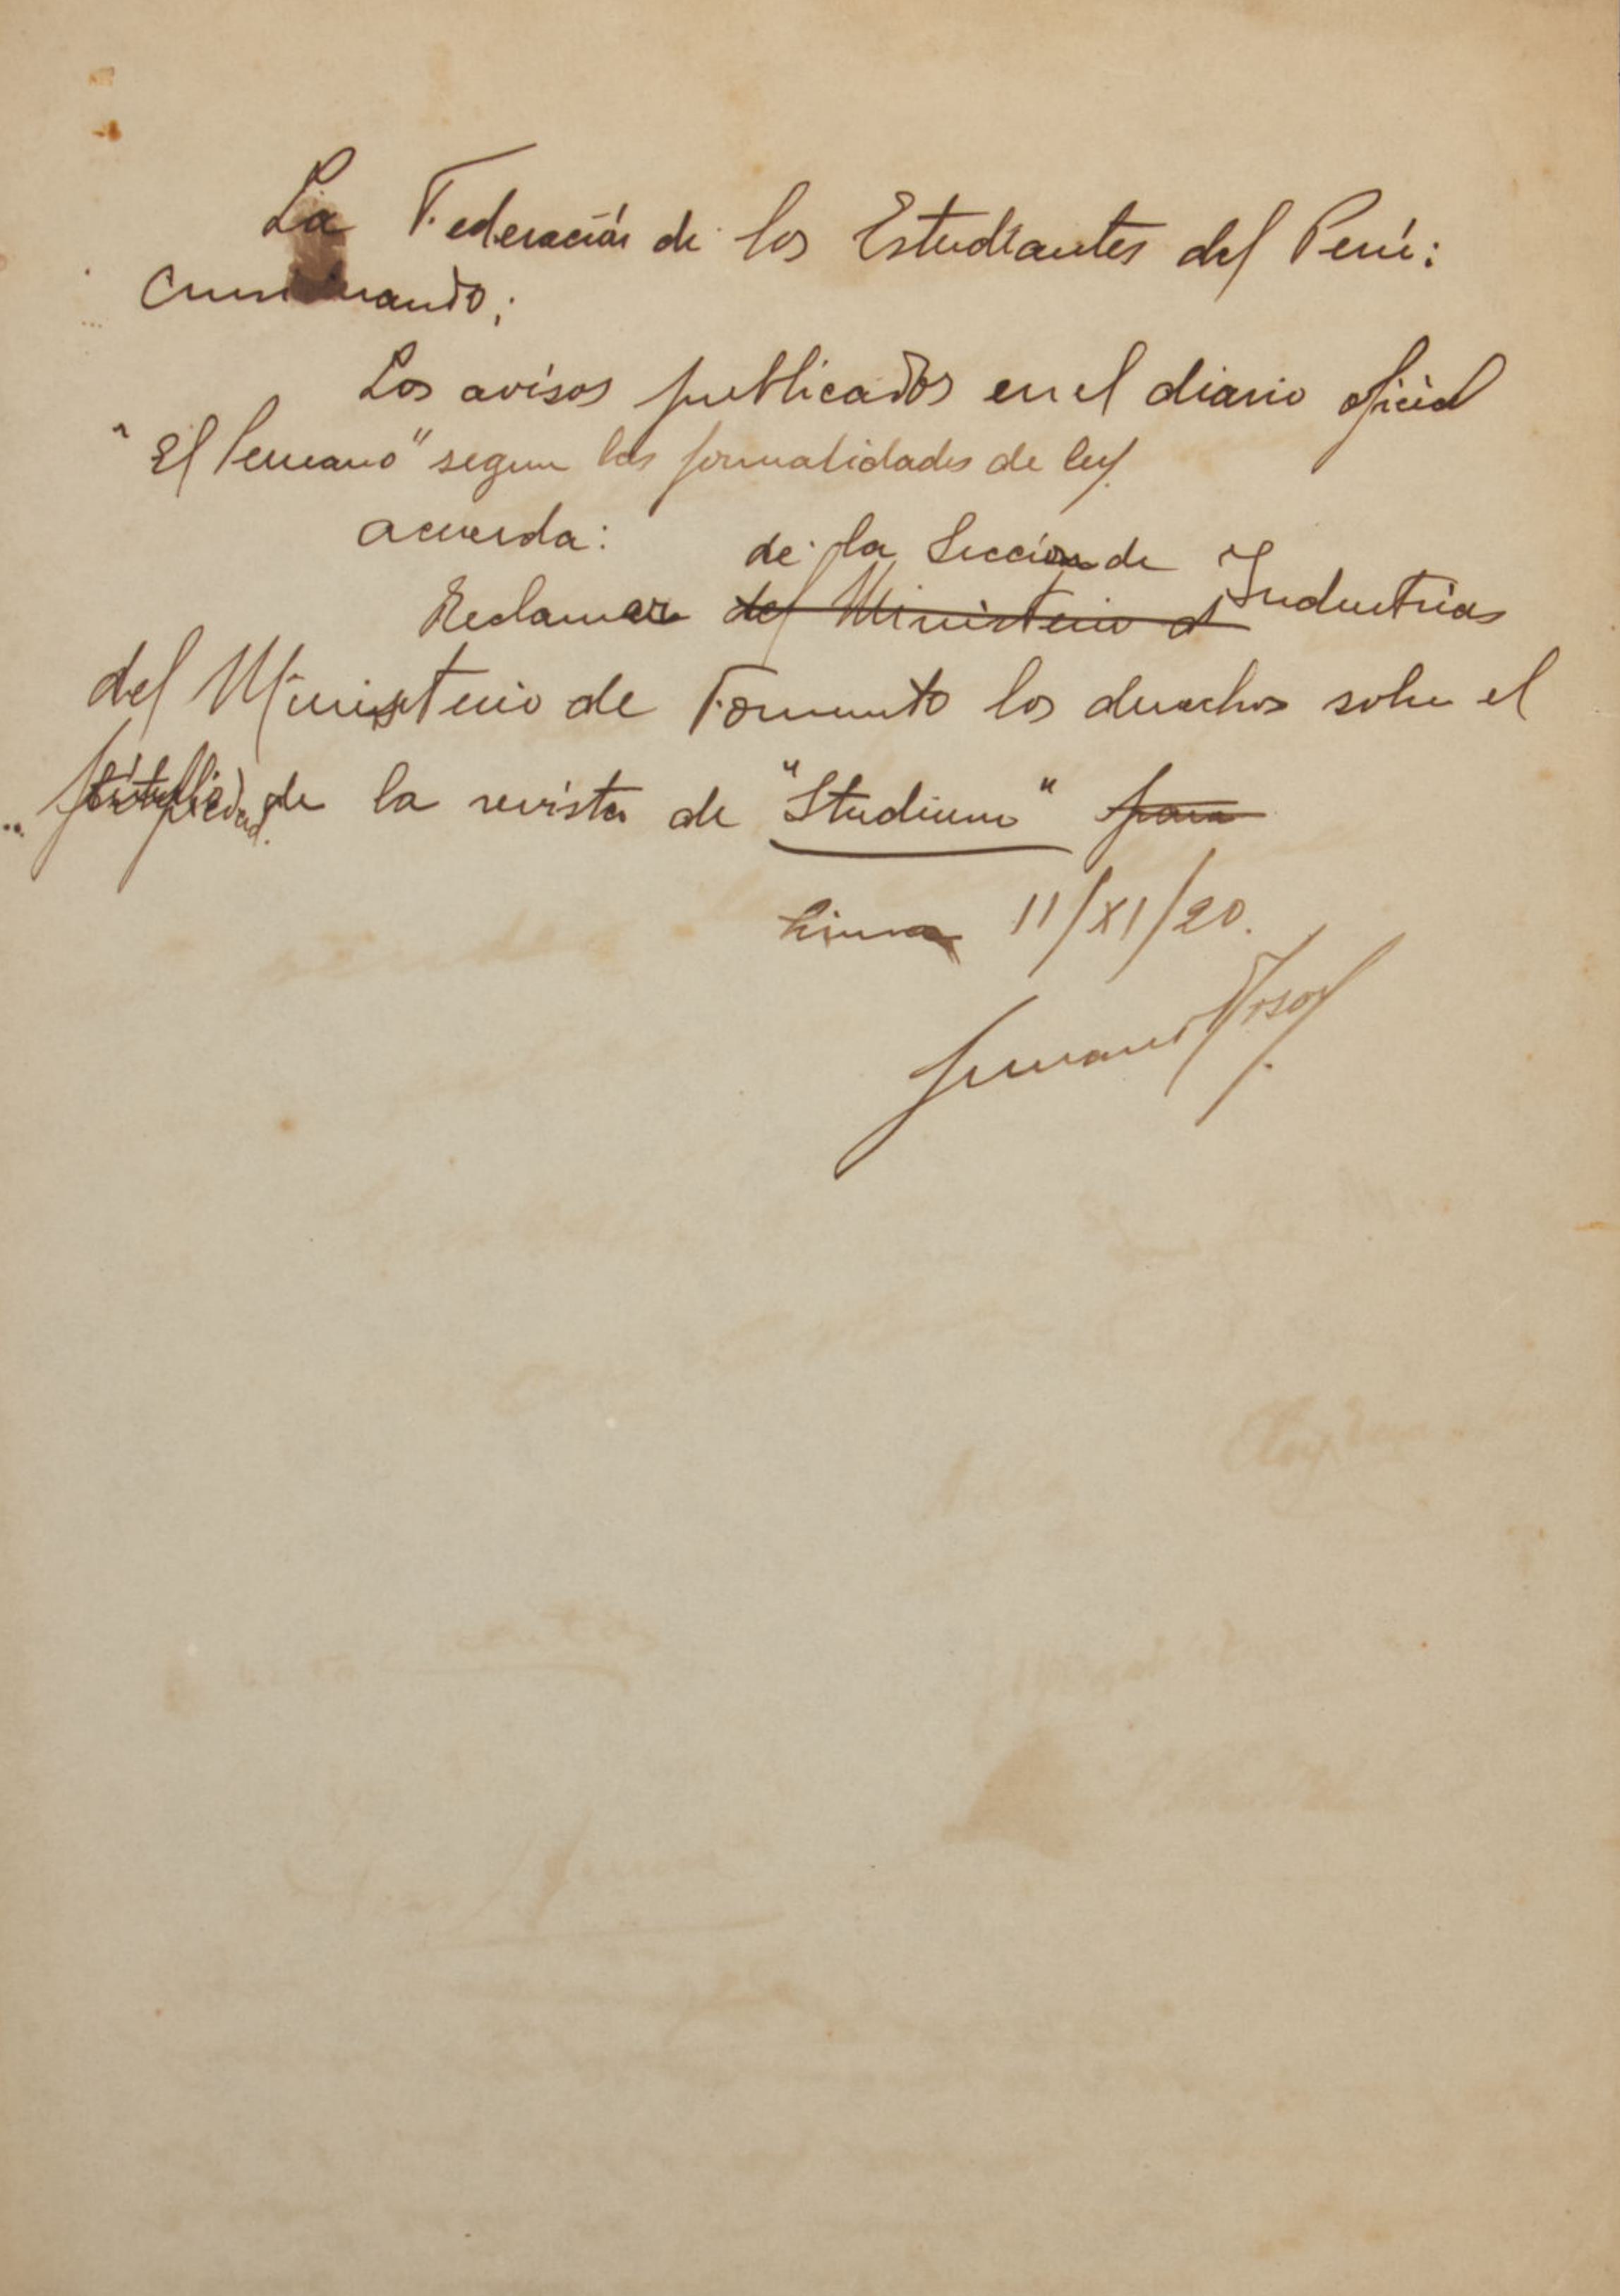 La Federación de los Estudiantes del Perú:
Considerando;
Los avisos publicados en el diario oficial
"El Peruano" segun las formalidades de ley.
acuerda:
de la Seccion de Industrias
Reclamar del Ministerio d
del Ministerio de Fomento los derechos sobre el
de la revista de "Studium" para
Lima 11/XI/20.